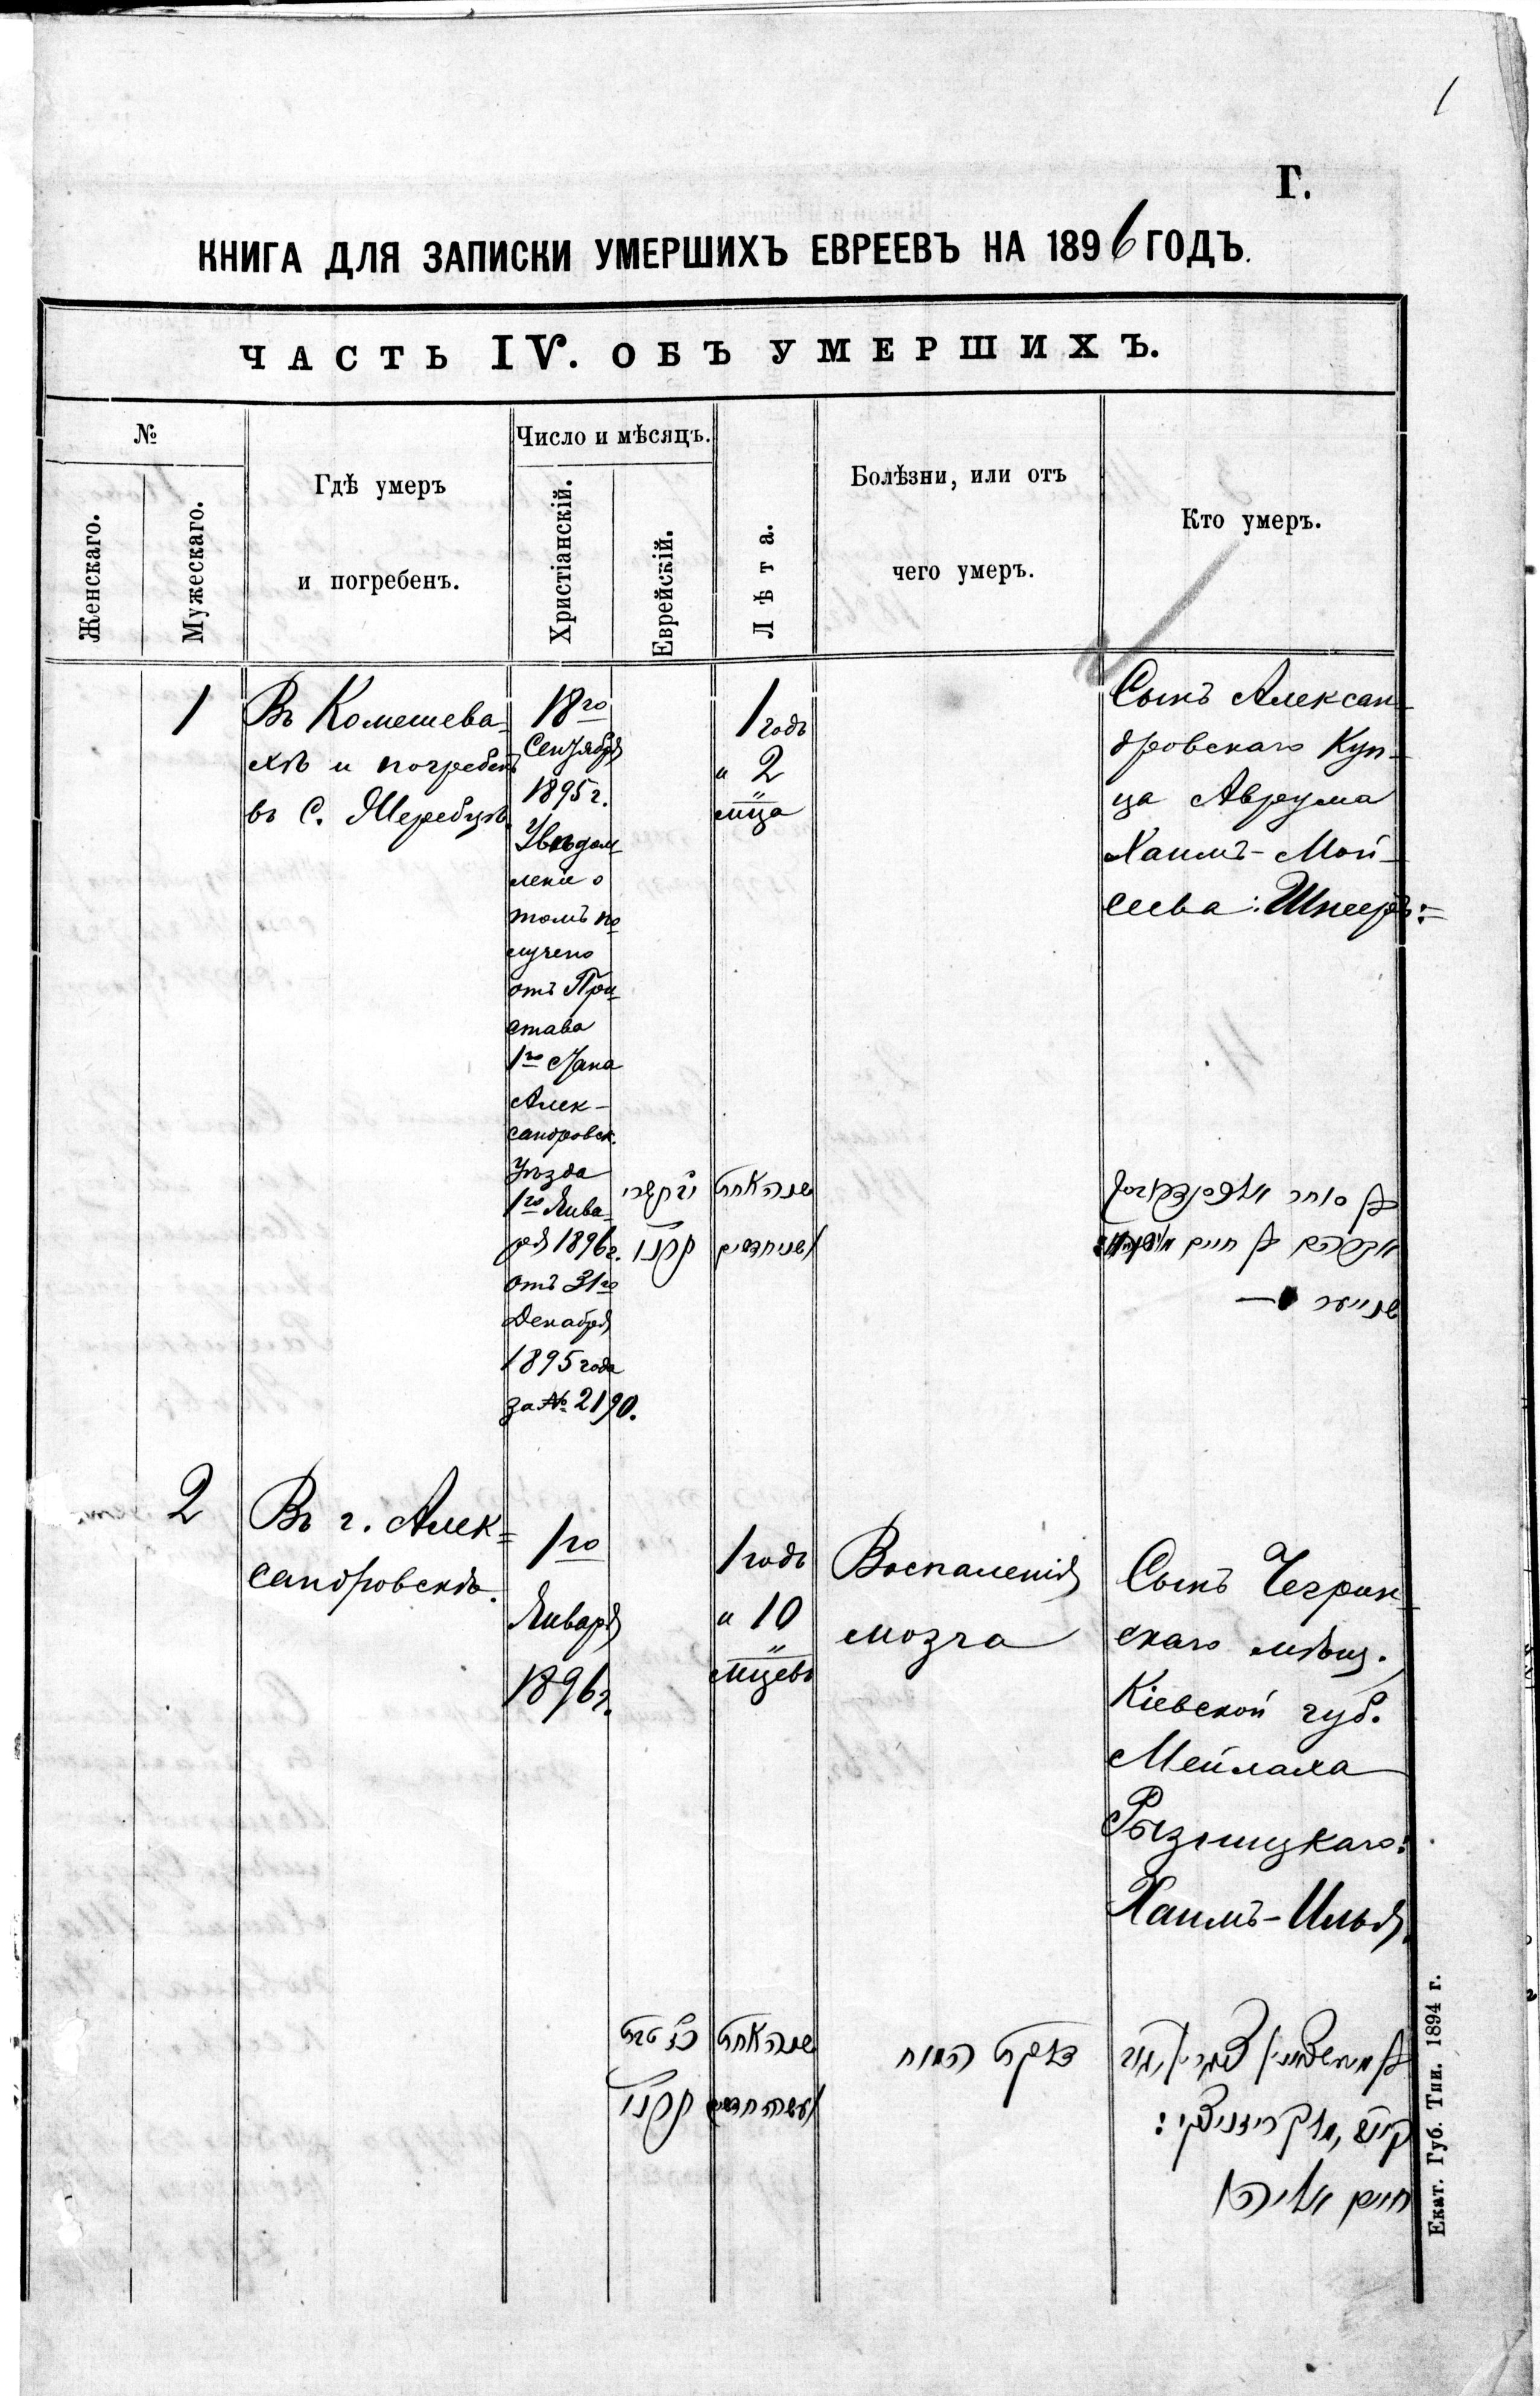 1
Г.
КНИГА ДЛЯ ЗАПИСКИ УМЕРШИХЪ ЕВРЕЕВЪ НА 1896 ГОДЪ.
ЧАСТЬ IV. ОБЪ УМЕРШИХЪ.
№
Женскаго.
Мужескаго.
Гдѣ умеръ
и погребенъ.
Число и мѣсяцъ.
Христіанскій.
Еврейскій.
Лѣта.
Болѣзни, или отъ
чего умеръ.
Кто умеръ.
1
Въ Комешева-
хъ и погребенъ
въ С. Жеребцѣ.
18го
Сентября
1895 г.
Увѣдом-
леніе о
томъ по
лучено
отъ При-
става
1го Стана
Алек-
сандровск.
Уѣзда
1го Янва-
ря 1896 г.
отъ 31го
Декабря
1895 года
за № 2190.
תשרי
שנה אחת
1 годъ
и 2
м-ца
Сынъ Алексан-
дровскаго Куп-
ца Аврума
Хаимъ-Мой-
сеева: Шнееръ:
אברהם בן חיים
שנייער
2
Въ г. Алек-
сандровскѣ.
1го
Января
1896 г.
שנה אחת
1 годъ
и 10
м-цевъ
Воспаленія
мозга
דלקת המוח
Сынъ Чегрин-
скаго мѣщ.
Кіевской губ.
Мейлаха
Рызницкаго:
Хаимъ-Илья.
חיים אליהו
Екат. Губ. Тип. 1894 г.